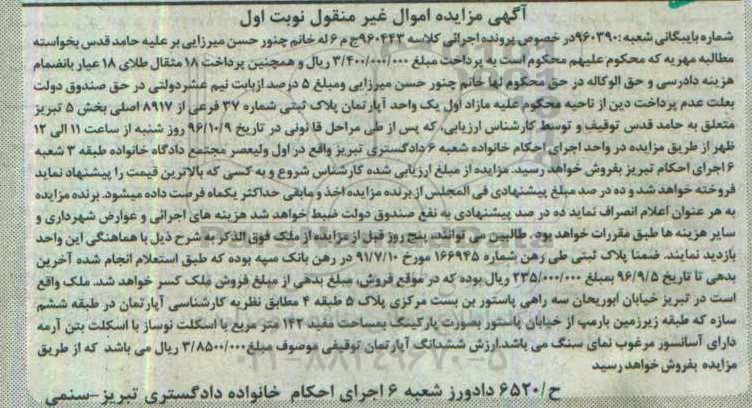 آگهی مزایده اموال غیر منقول نوبت اول
شماره بایگانی شعبه :۹۶۰۳۹۰در خصوص پرونده اجرائی کلاسه ۹۶۰۴۴۳ج م ۶ له خانم چنور حسن میرزایی بر علیه حامد قدس بخواسته
مطالبه مهریه که محکوم علیهم محکوم است به پرداخت مبلغ ۳/۴۰۰/۰۰۰/۰۰۰ ریال و همچنین پرداخت ۱۸ مثقال طلای ۱۸ عیار بانضمام
هزینه دادرسی و حق الوکاله در حق محکوم لها خانم چنور حسن میرزایی ومبلغ ۵ درصد ازبابت نیم عشر دولتی در حق صندوق دولت
بعلت عدم پرداخت دین از ناحیه محکوم علیه مازاد اول یک واحد آپارتمان پلاک ثبتی شماره ۳۷ فرعی از ۸۹۱۷ اصلی بخش ۵ تبریز
متعلق به حامد قدس توقیف و توسط کارشناس ارزیابی، که پس از طی مراحل قانونی در تاریخ ۹۶/۱۰/۹ روز شنبه از ساعت ۱۱ الی ۱۲
ظهر از طریق مزایده در واحد اجرای احکام خانواده شعبه ۶ دادگستری تبریز واقع در اول ولیعصر مجتمع دادگاه خانواده طبقه ۳ شعبه
۶ اجرای احکام تبریز بفروش خواهد رسید. مزایده از مبلغ ارزیابی شده کارشناس شروع و به کسی که بالاترین قیمت را پیشنهاد نماید
فروخته خواهد شد و ده در صد مبلغ پیشنهادی فی المجلس از برنده مزایده اخذ و مابقی حداکثر یکماه فرصت داده میشود. برنده مزایده
به هر عنوان اعلام انصراف نماید ده در صد پیشنهادی به نفع صندوق دولت ضبط خواهد شد هزینه های اجرائی و عوارض شهرداری و
سایر هزینه ها طبق مقررات خواهد بود. طالبین می توانند، پنج روز قبل از مزایده از ملک فوق الذکر با شرح ذیل با هماهنگی این واحد
بازدید نمایند. ضمنا پلاک ثبتی طی رهن شماره ۱۶۶۹۴۵ مورخ ۹۱/۷/۱۰ در رهن بانک سپه بوده که طبق استعلام انجام شده آخرین
بدهی تا تاریخ ۹۶/۹/۵ بمبلغ ۲۳۵/۰۰۰/۰۰۰ ریال بوده که در موقع فروش، مبلغ بدهی از مبلغ فروش ملک کسر خواهد شد. ملک واقع
است در تبریز خیابان ابوریحان سه راهی پاستور بن بست مرکزی پلاک ۵ طبقه ۴ مطابق نظریه کارشناسی آپارتمان در طبقه ششم
سازه که طبقه زیرزمین بارمپ از خیابان پاستور بصورت پارکینگ بمساحت مفید ۱۴۲ متر مربع با اسکلت نوساز با اسکلت بتن آرمه
دارای آسانسور مرغوب نمای سنگ می باشد.ارزش ششدانگ آپارتمان توقیفی موصوف مبلغ۳/۸۵۰۰/۰۰۰ ریال می باشد که از طریق
مزایده بفروش خواهد رسید
ح/۶۵۲۰ دادورز شعبه ۶ اجرای احکام خانواده دادگستری تبریز-سنمی
۰۲۱-۸۸۳۴۹۶۷۰-۵